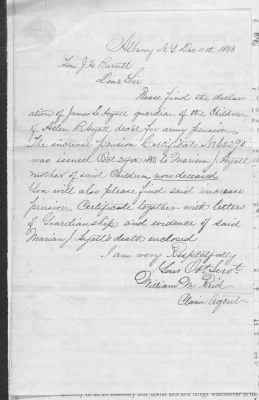 Albany N.Y Dec 11th 1866
Hon. J. H. Barrett
Dear Sir
Please find the declar
ation of James L. Hyatt guardian of the Children
of Helen R Hyatt dec'd for army pension
The increase pension Certificate No
was issued Oct 1866 to Marian J. Hyatt
mother of said Children, now deceased
You will also please find said increase
pension Certificate together with letters
of Guardianship and evidence of said
Marian J. Hyatt's death enclosed
I am very Respectfully
Your Obt Servt
William M. Reid
Claim Agent